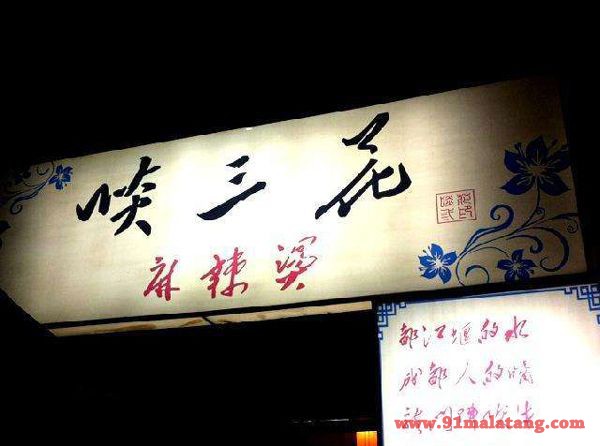 啖三花
麻辣燙
都江堰的水
成都人的嘴
www.91malatang.com